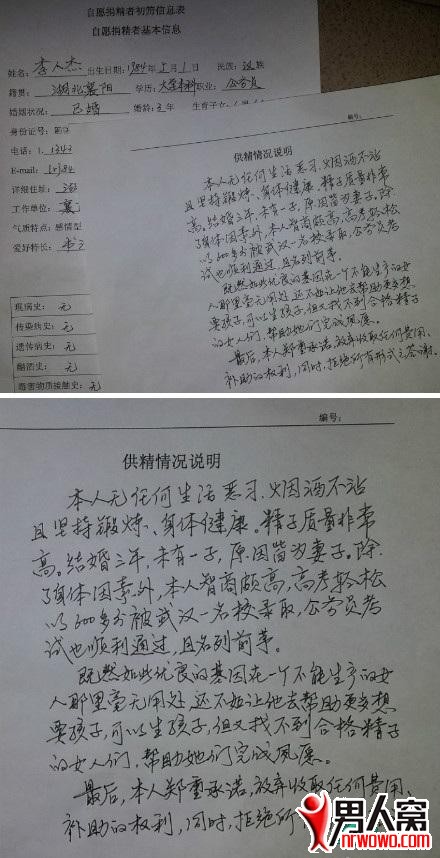 自愿捐精者初简信息表
自愿捐精者基本信息
姓名：李人杰 出生日期：1984年5月1日 民族：汉族
籍贯：湖北襄阳 学历：大学本科 职业：公务员
婚姻状况：已婚 婚龄：3年 生育子女
身份证号：
电话：1343
E-mail：
详细住址：
工作单位：襄
气质特点：感情型
爱好特长：
现病史：无
传染病史：无
遗传病史：无
酗酒史：无
毒害物质接触史：无
编号：
供精情况说明
本人无任何生活恶习，烟酒不沾
且坚持锻炼、身体健康。精子质量非常
高。结婚三年，未有一子，原因皆为妻子。除
了身体因素外，本人智商颇高，高考轻松
以600多分被武汉一名校录取，公务员考
试也顺利通过，且名列前茅。
既然如此优良的基因在一个不能生产的女
人那里毫无用处，还不如让他去帮助更多想
要孩子，可以生孩子，但又找不到合格精子
的女人们，帮助她们完成夙愿。
最后，本人郑重承诺，放弃收取任何费用、
补助的权利，同时，拒绝所有形式之答谢。
编号：
供精情况说明
本人无任何生活恶习，烟酒不沾
且坚持锻炼、身体健康。精子质量非常
高。结婚三年，未有一子，原因皆为妻子。除
了身体因素外，本人智商颇高，高考轻松
以600多分被武汉一名校录取，公务员考
试也顺利通过，且名列前茅。
既然如此优良的基因在一个不能生产的女
人那里毫无用处，还不如让他去帮助更多想
要孩子，可以生孩子，但又找不到合格精子
的女人们，帮助她们完成夙愿。
最后，本人郑重承诺，放弃收取任何费用、
补助的权利，同时，拒绝所
男人窝
nrwowo.com